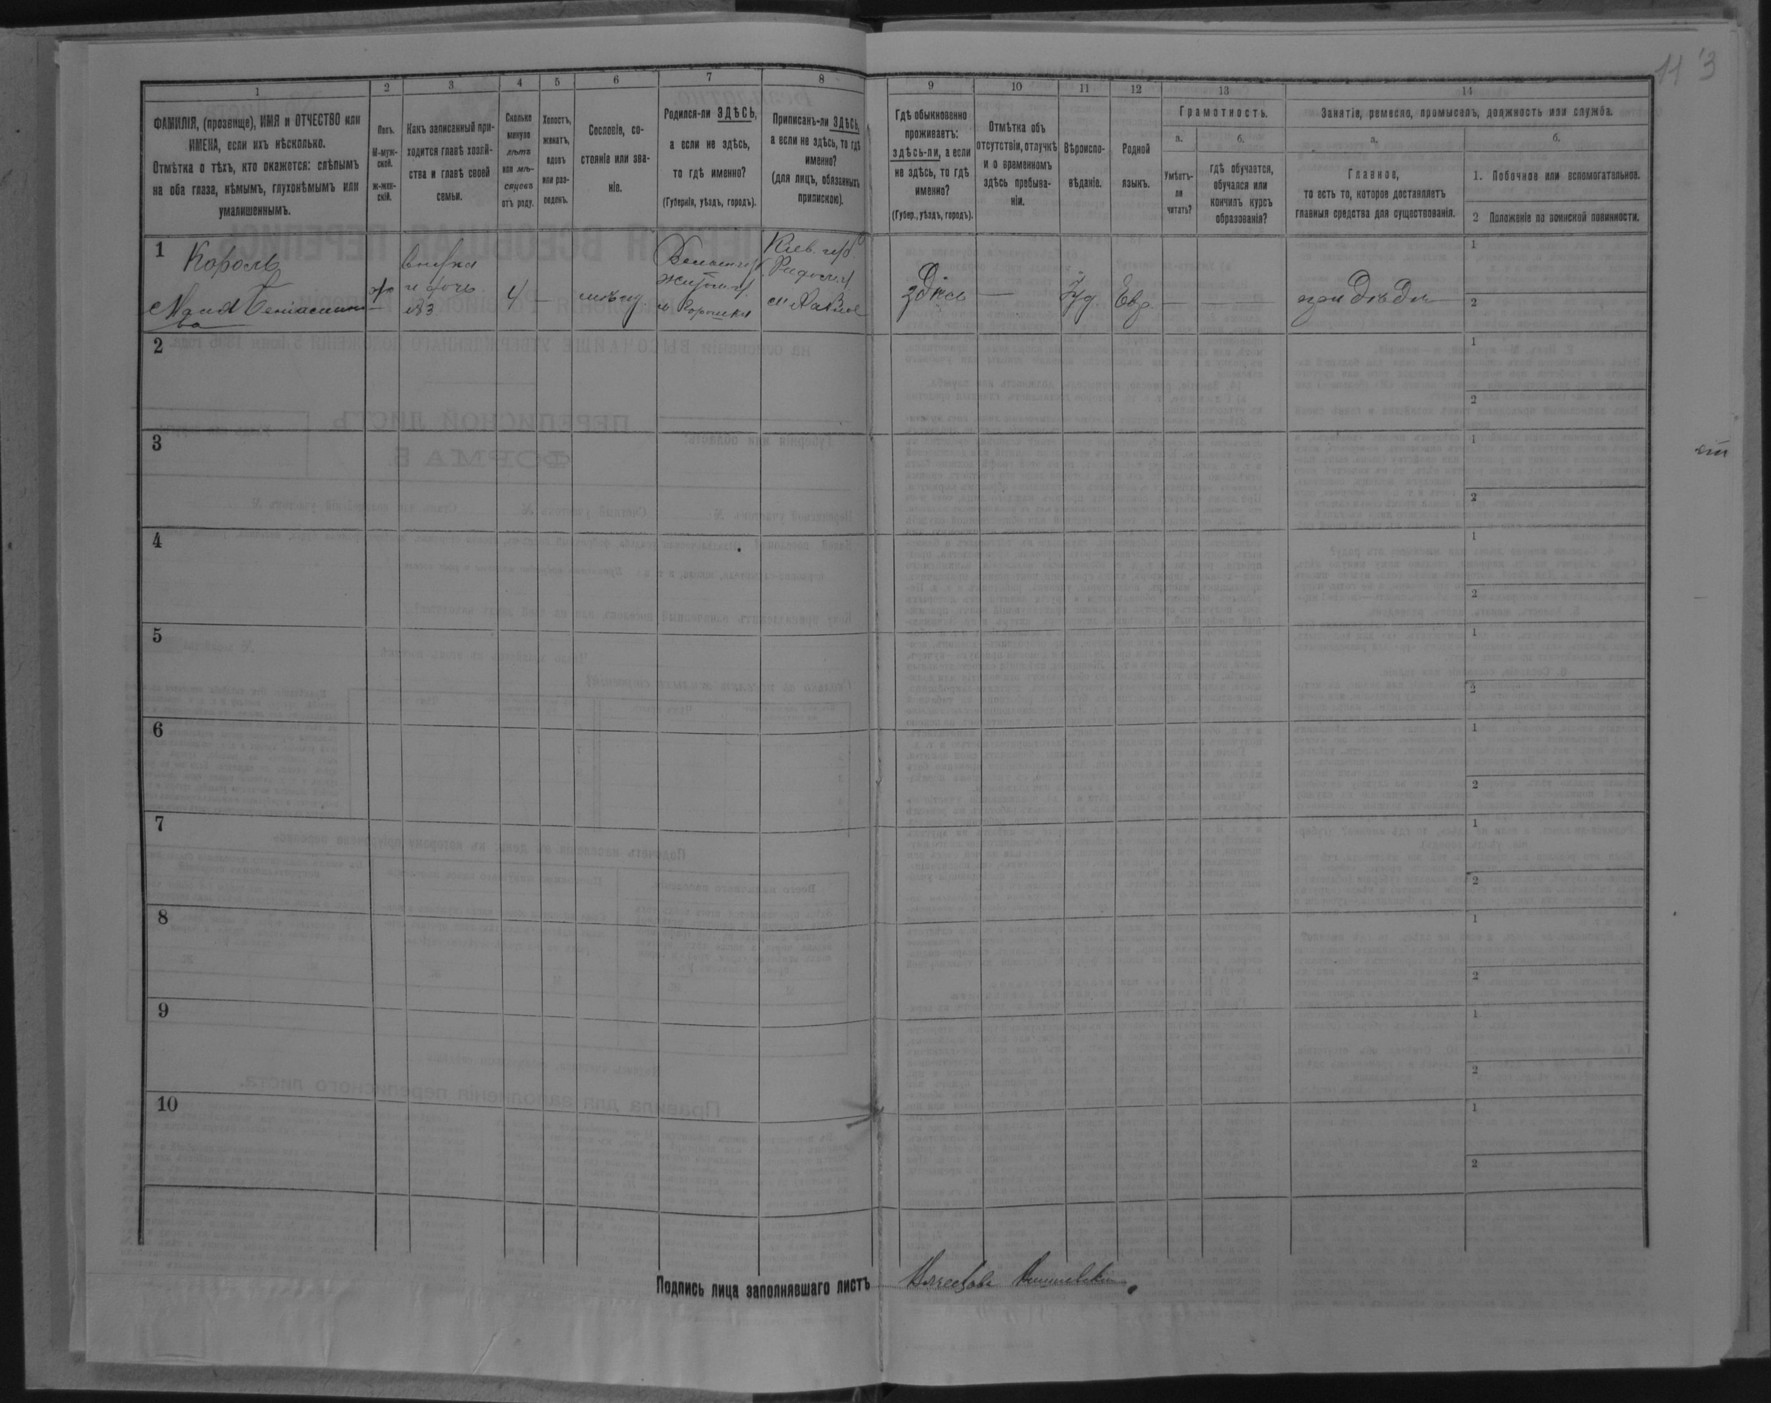 113
1
2
3
4
5
6
7
8
ФАМИЛІЯ, (прозвище), ИМЯ и ОТЧЕСТВО или
ИМЕНА, если ихъ нѣсколько.
Отмѣтка о тѣхъ, кто окажется: слѣпымъ
на оба глаза, нѣмымъ, глухонѣмымъ или
умалишеннымъ.
Полъ.
М-муж-
ской.
Ж-жен-
скій.
Какъ записанный при-
ходится главѣ хозяй-
ства и главѣ своей
семьи.
Сколько
минуло
лѣтъ
или мѣ-
сяцевъ
отъ роду.
Холостъ,
женатъ,
вдовъ
или раз-
веденъ.
Сословіе, со-
стояніе или зва-
ніе.
Родился-ли ЗДѢСЬ,
а если не здѣсь,
то гдѣ именно?
(Губернія, уѣздъ, городъ).
Приписанъ-ли ЗДѢСЬ,
а если не здѣсь, то гдѣ
именно?
(для лицъ, обязанныхъ
припискою).
9
10
11
12
13
14
Гдѣ обыкновенно
проживаетъ:
здѣсь-ли, а если
не здѣсь, то гдѣ
именно?
(Губер., уѣздъ, городъ).
Отмѣтка объ
отсутствіи, отлучкѣ
и о временномъ
здѣсь пребыва-
ніи.
Вѣроиспо-
вѣданіе.
Родной
языкъ.
Грамотность.
а.
б.
Умѣетъ-
ли
читать?
гдѣ обучается,
обучался или
кончилъ курсъ
образованія?
Занятіе, ремесло, промыселъ, должность или служба.
а.
б.
Главное,
то есть то, которое доставляетъ
главныя средства для существованія.
1. Побочное или вспомогательное.
2 Положеніе по воинской повинности.
1
Король
Маля
ж
внучка
и дочь
№3
4
—
Житом.
Кіев. губ.
Радом. у.
здѣсь
—
Іуд
Евр.
—
—
при дѣдѣ
1
2
2
1
2
3
1
2
4
1
2
5
1
2
6
1
2
7
1
2
8
1
2
9
1
2
10
1
2
Подпись лица заполнявшаго листъ